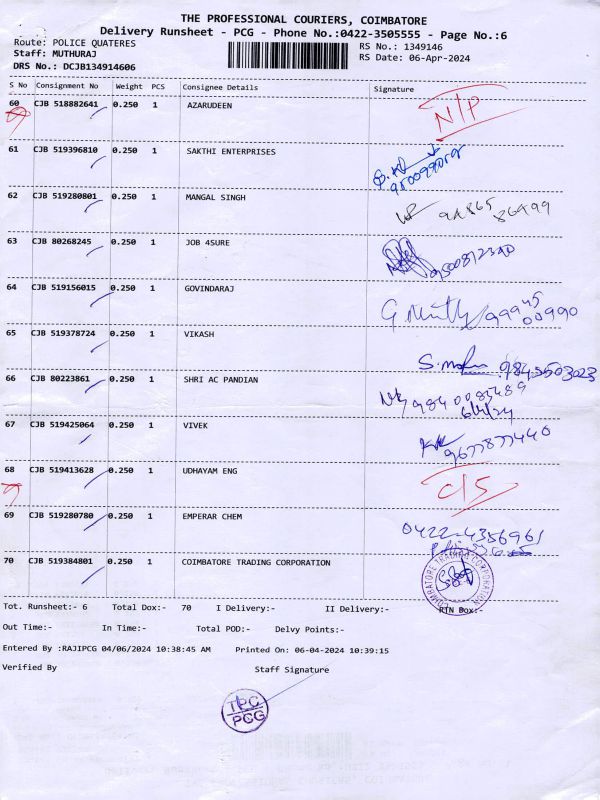 THE PROFESSIONAL COURIERS, COIMBATORE
Delivery Runsheet - PCG - Phone No.:0422-3505555 - Page No.:6
Route: POLICE QUATERES
RS No.: 1349146
Staff: MUTHURAJ
RS Date: 06-Apr-2024
DRS No.: DCJB134914606
S No Consignment No Weight PCS Consignee Details Signature
60 CJB 518882641 0.250 1 AZARUDEEN N/P
61 CJB 519396810 0.250 1 SAKTHI ENTERPRISES
62 CJB 519280801 0.250 1 MANGAL SINGH
63 CJB 80268245 0.250 1 JOB 4SURE
64 CJB 519156015 0.250 1 GOVINDARAJ 99945
00990
65 CJB 519378724 0.250 1 VIKASH
S. 9845503023
66 CJB 80223861 0.250 1 SHRI AC PANDIAN 9840083489
6/4/24
67 CJB 519425064 0.250 1 VIVEK 9677877440
68 CJB 519413628 0.250 1 UDHAYAM ENG C/S
69 CJB 519280780 0.250 1 EMPERAR CHEM 0422-4356961
70 CJB 519384801 0.250 1 COIMBATORE TRADING CORPORATION
COIMBATORE TRADING CORPORATION
Tot. Runsheet:- 6 Total Dox:- 70 I Delivery:- II Delivery:- RTN Dox:-
Out Time:- In Time:- Total POD:- Delvy Points:-
Entered By :RAJIPCG 04/06/2024 10:38:45 AM Printed On: 06-04-2024 10:39:15
Verified By Staff Signature
TPC
PCG